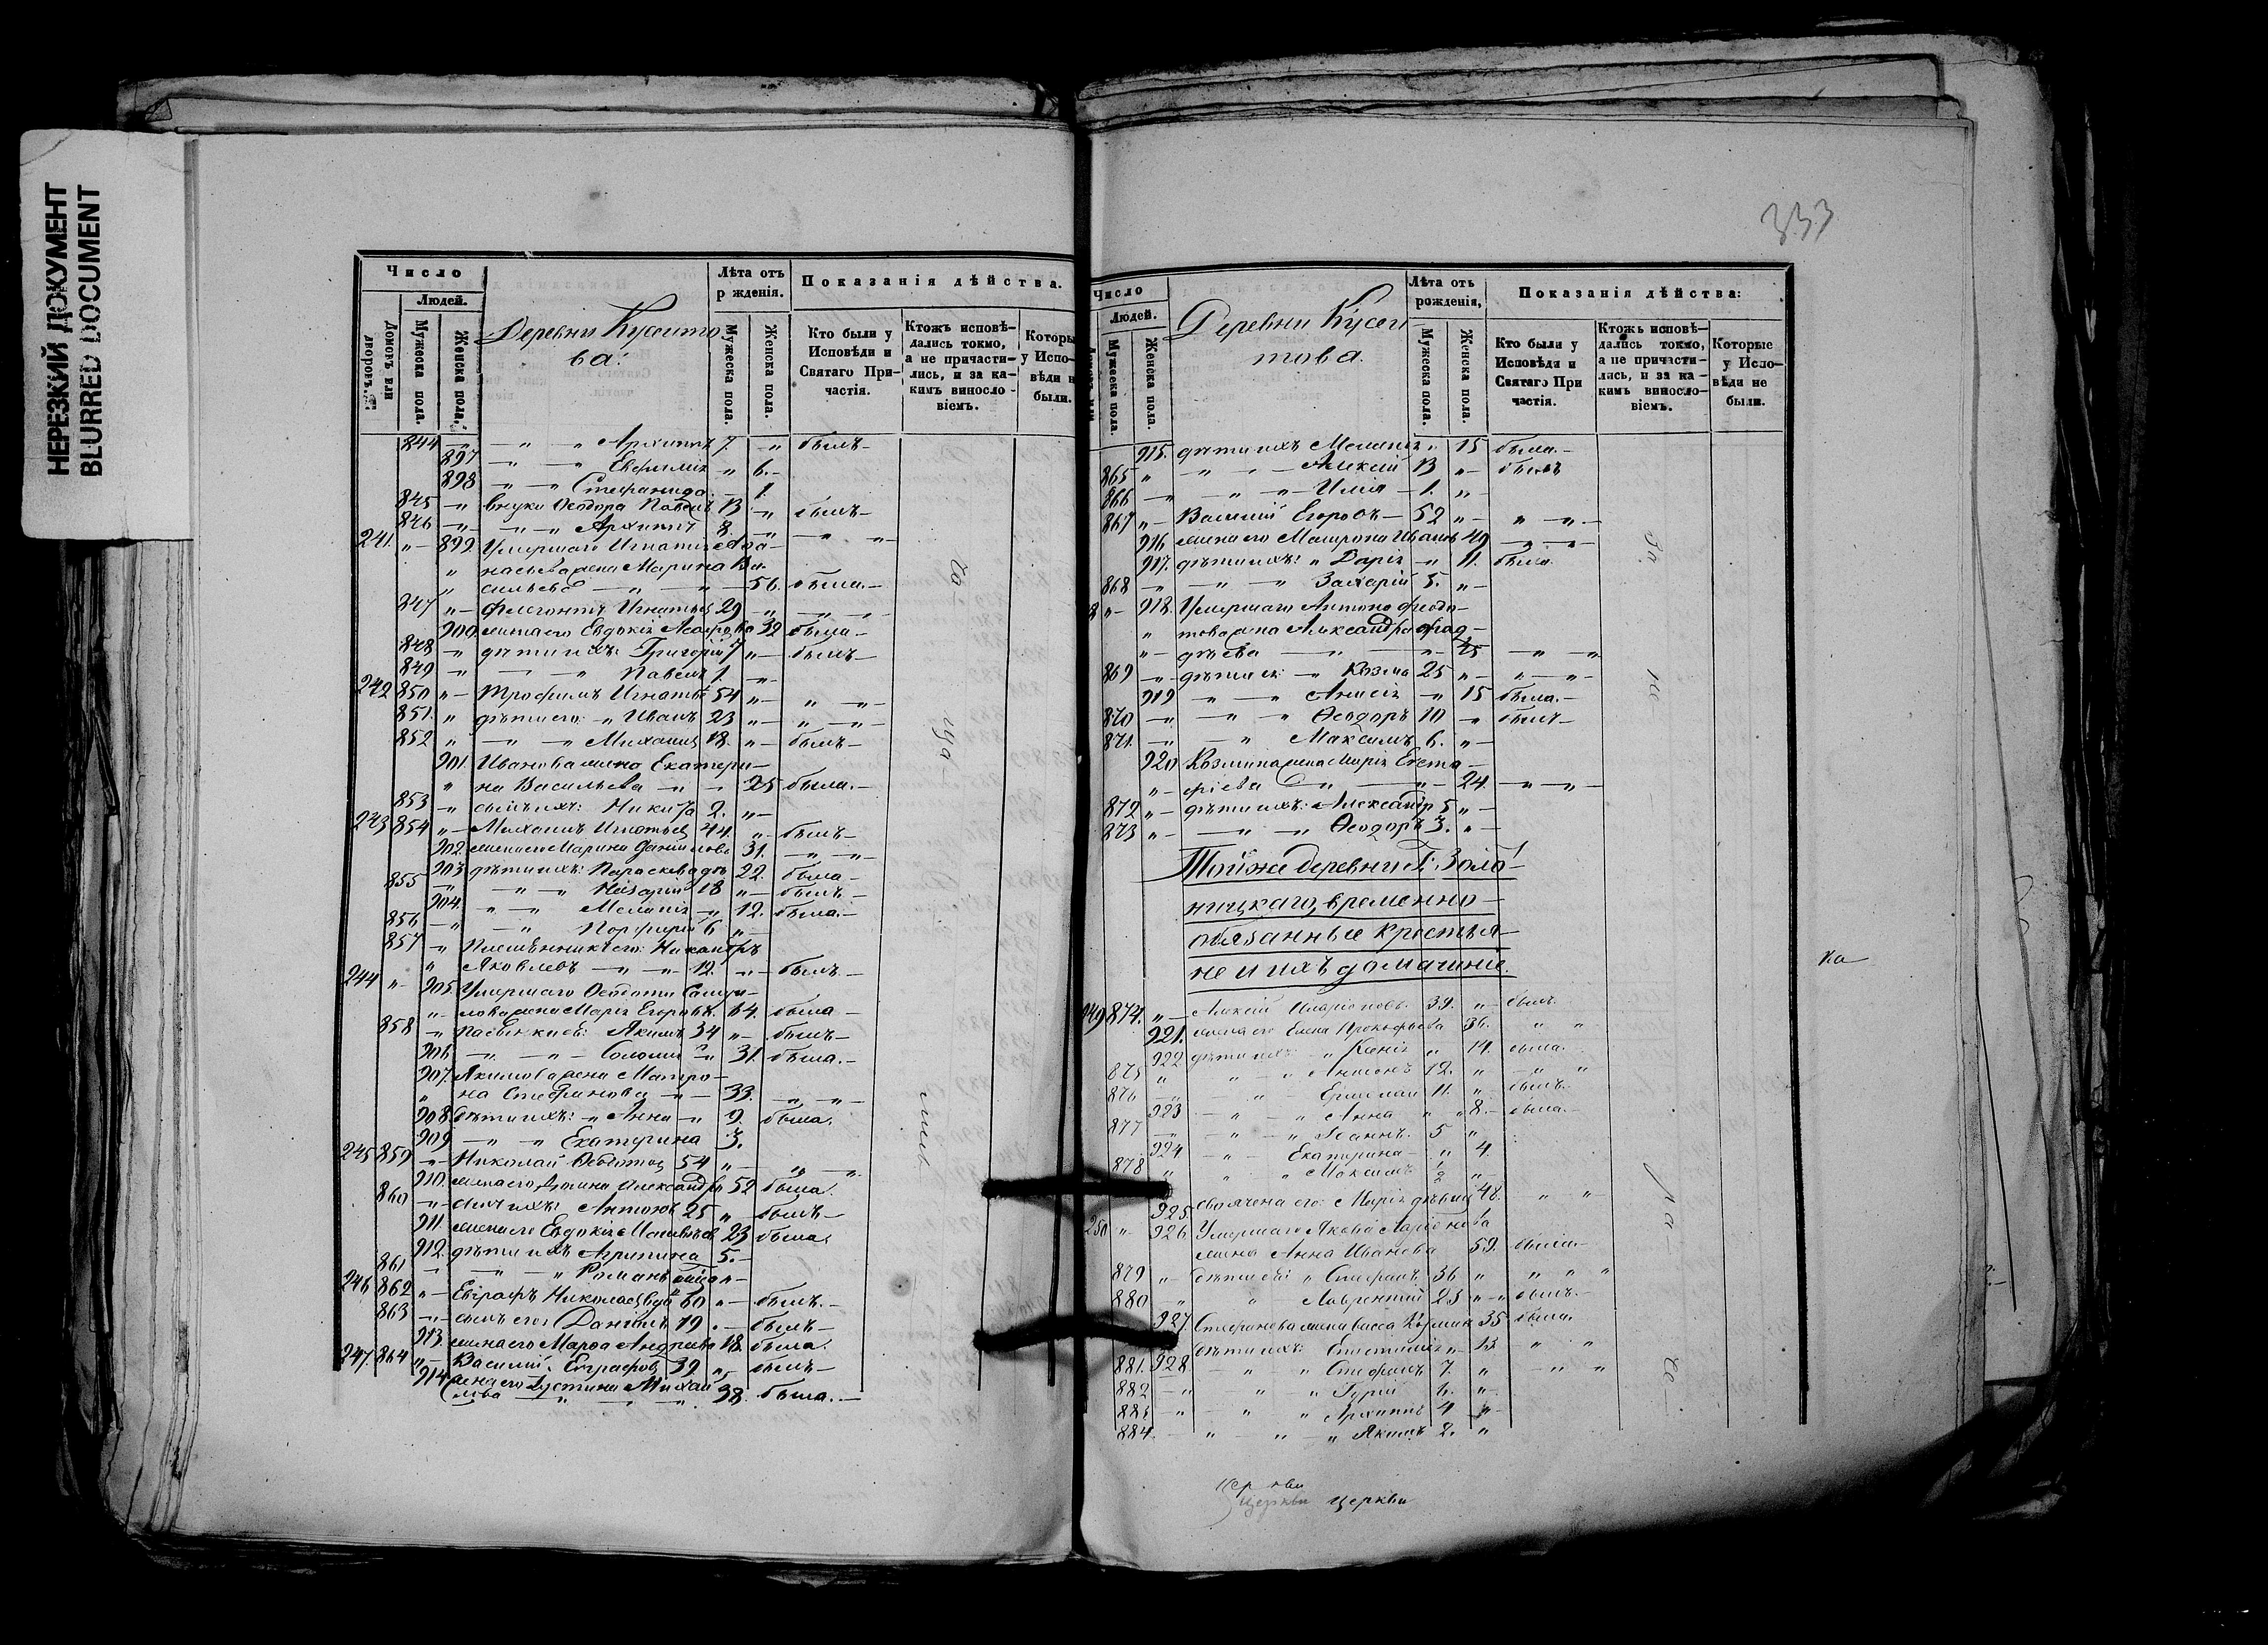 НЕРЕЗКИЙ ДОКУМЕНТ
BLURRED DOCUMENT
Число
Людей.
Домовъ или дворовъ.
Мужеска пола.
Женска пола.
Деревни Кусеито
ва.
Лѣта отъ
р жденія.
Мужеска пола.
Женска пола.
Показанія дѣйства.
Кто были у
Исповѣди и
Святаго При-
частія.
Ктожъ исповѣ-
дались токмо,
а не причасти-
лись, и за ка-
кимъ виносло-
віемъ.
Которы
у Испо-
вѣди н
были.
844 — — " Архиппъ 7. " былъ —
897 — — " Евфимія " 6. —
898 — " Стефанида — 1.
845 — внуки Ѳеодора Павелъ 13 — " былъ —
846 — — " — Архиппъ 8. — " — "
241. " — 899 Умершаго Игнатія Аѳа-
" насьева жена Марина Ва-
" сильева — " — 56. была. —
847 " — Флегонтъ Игнатьев 29 — " — " —
900. жена его Евдокія 32 была —
848 — " дѣти ихъ: Григорій 7 " — былъ —
849 — " — " Павелъ 1. " —
242 850 " — Трофимъ Игнатьев 54 " — " — " —
851. " дѣти его: " Иванъ 23 " — " — " —
852 " — " — " Михаилъ 18. " — былъ —
901. Иванова жена Екатери-
" на Васильева — " — 25 была. —
853 — " сынъ ихъ: Никита 2. " —
243 854 " — Михаилъ Игнатьев 44. " — былъ —
902. жена его Марина Данилова 31. — " — " —
903 дѣти ихъ: Параскева 22. была —
855 — " — " Назарій 18 " — былъ —
904. " — " Меланія — " 12. была. —
856 — " — " Порфирій 6 " —
857 — " Племянникъ его: Никандръ
" Яковлевъ — " — " 12. " — былъ. —
244 " — 905. Умершаго Ѳедота Самуи-
" — лова жена Марія Егорова. 64. была —
858 — " пасынки ея: Якимъ 34 " — былъ —
906. — " — " — Соломія — " 31. была. —
907. Якимова жена Матро-
" на Стефанова — " — 33. — " — " —
908. дѣти ихъ: " Анна — " 9. была.
909 — " — " Екатерина 3.
245 859 — " Николай Ѳедотов 54 " — " — "
910. жена его Александр 52 была.
860 — " сынъ ихъ: Антонъ 25 " — былъ —
911. жена его Евдокія 23 была.
912. дѣти ихъ Агрипина 5. —
861 — " — " Романъ " —
246 862 " — Евграфъ Николаевъ 60 " — былъ. —
863 — " сынъ его: Даніилъ 19. — былъ —
913. жена его Марѳа Андреева 18. была
247. 864 " — Василий Евграфов 39 " — былъ —
914 жена его Устина Михаи
лова — " — " — " 38. была. —
333
Число
Людей.
Мужеска пола.
Женска пола.
Деревни Кусеи-
това.
Лѣта отъ
рожденія,
Мужеска пола.
Женска пола.
Показанія дѣйства:
Кто были у
Исповѣди и
Святаго При
частія.
Ктожь исповѣ-
дались токмо,
а не причасти-
лись, и за ка-
кимъ виносло-
віемъ.
Которые
у Испо-
вѣди не
были.
915. дѣти ихъ Меланія " 15 была. —
865 " — " — " — Алексій 13 " — былъ
866 — " — " — " — Илія — 1. " —
867 " — Василий Егоровъ — 52 " — " — " —
916. жена его Матрона Иванов 49 — " — " —
917. дѣти ихъ: " Дарія — " 11. была.
868 — " — " — " Захарій 5. " —
8 " — 918. Умершаго Антона Ѳедо-
" това жена Александра Ѳад-
" — дѣева — " — 45 — " — "
869 — " — дѣти ея: — " Козма 25 " — " — " —
919 — " — " Анисія — " 15 была. —
870 — " — " Ѳеодоръ 10 — " былъ —
871. — " — " Максимъ 6. " —
920 Козмина жена Марія Евста-
" — фіева — " — " — 24. — " — " —
872 " — дѣти ихъ: Александръ 5 " —
873 " — — " — " Ѳеодоръ 3. " —
Той же деревни Г. Золо-
ницкаго, временно-
обязанные крестья-
не и ихъ домашніе.
249 874. " — Алексій Иларіоновъ. 39. " — былъ.
921. жена его Елена Прокофьева 36. " "
922 дѣти ихъ: " Ксенія " 14. была.
875 " " — " Антонъ 12. " — " "
876 — " " — Ермолай 11. " былъ. —
923 — " — " Анна " " 8. — была. —
877 — " — " — " Іоаннъ. 5 "
924 — " — Екатерина — " 4.
878 " " " Максимъ 1/2 " —
925. своячена его: Марія дѣвица 48. " "
250 " 926 Умершаго Якова Ларіонова
жена Анна Иванова 59. была. —
879 " — дѣти ея: " Стефанъ 36 " " " "
880 " " Лаврентій 23 " — былъ. —
927. Стефанова жена Васса Кузмина 35 была.
дѣти ихъ: " — 13 — " "
881. 928 — " — " Стефанъ 7. " — " "
882 — " " " Гурій " —
883 — " — " " Архиппъ 4 " —
884. — " — " — " Якимъ 2. "
ка
церкви
церкви